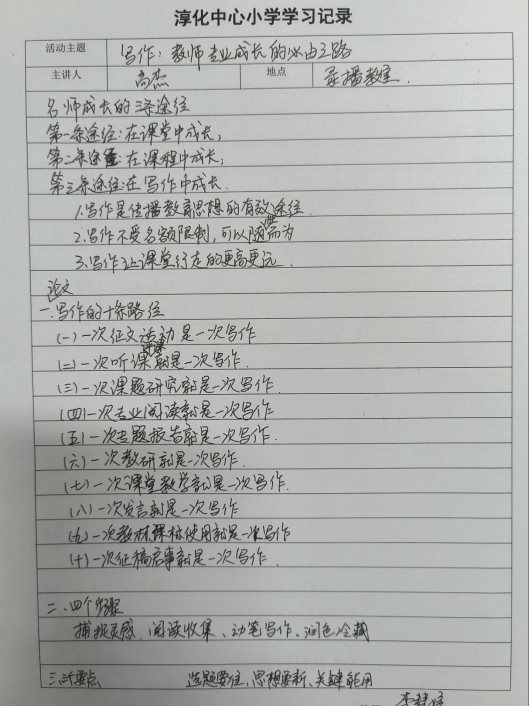 淳化中心小学学习记录
活动主题 写作:教师专业成长的必由之路
主讲人 高杰 地点 录播教室.
名师成长的三条途径
第一条途径:在课堂中成长;
第二条途径:在课程中成长;
第三条途径:在写作中成长.
1.写作是传播教育思想的有效途径.
2.写作不受名额限制,可以随时随为
3.写作让课堂行走的更高更远.
论文
一.写作的十条路径
(一)一次征文活动是一次写作
(二)一次听课评课就是一次写作
(三)一次课题研究就是一次写作
(四)一次专业阅读就是一次写作
(五)一次专题报告就是一次写作.
(六)一次教研就是一次写作.
(七)一次课堂教学就是一次写作.
(八)一次发言就是一次写作
(九)一次教材课标使用就是一次写作
(十)一次征稿启事就是一次写作.
二、四个步骤
捕捉灵感、阅读收集、动笔写作、润色冷藏
三、三个要点 选题要佳、思想要新、关键能用